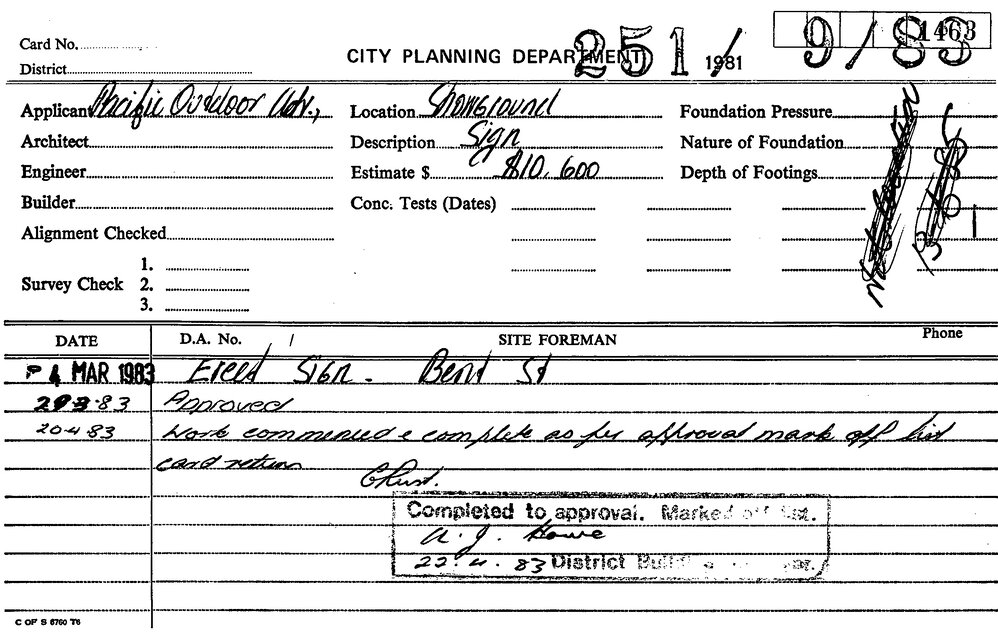 Card No.
CITY PLANNING DEPARTMENT 251/ 1981 9/83 1463
District
Applicant Pacific Outdoor Adv., Location Showground Foundation Pressure
Architect Description Sign Nature of Foundation
Engineer Estimate $ $10,600 Depth of Footings
Builder Conc. Tests (Dates)
Alignment Checked
1.
Survey Check 2.
3.
DATE D.A. No. / SITE FOREMAN Phone
4 MAR 1983 Erect Sign. Bent St
29·3·83 Approved
20·4·83 Work commenced & complete as per approval mark off list
card return
Completed to approval. Marked off list.
A. J. Howe
22.4.83 District Building
C OF S 6760 T6